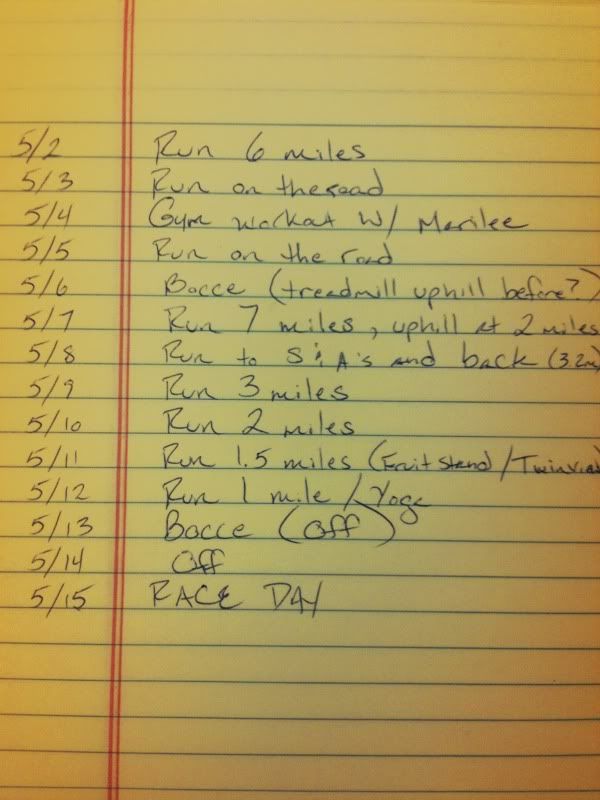 5/2 Run 6 miles
5/3 Run on the road
5/4 Gym workout w/ Marilee
5/5 Run on the road
5/6 Bocce (treadmill uphill before?)
5/7 Run 7 miles, uphill at 2 miles
5/8 Run to S & A's and back (3.2m
5/9 Run 3 miles
5/10 Run 2 miles
5/11 Run 1.5 miles (Fruit Stand/
5/12 Run 1 mile / Yoga
5/13 Bocce (Off)
5/14 Off
5/15 RACE DAY